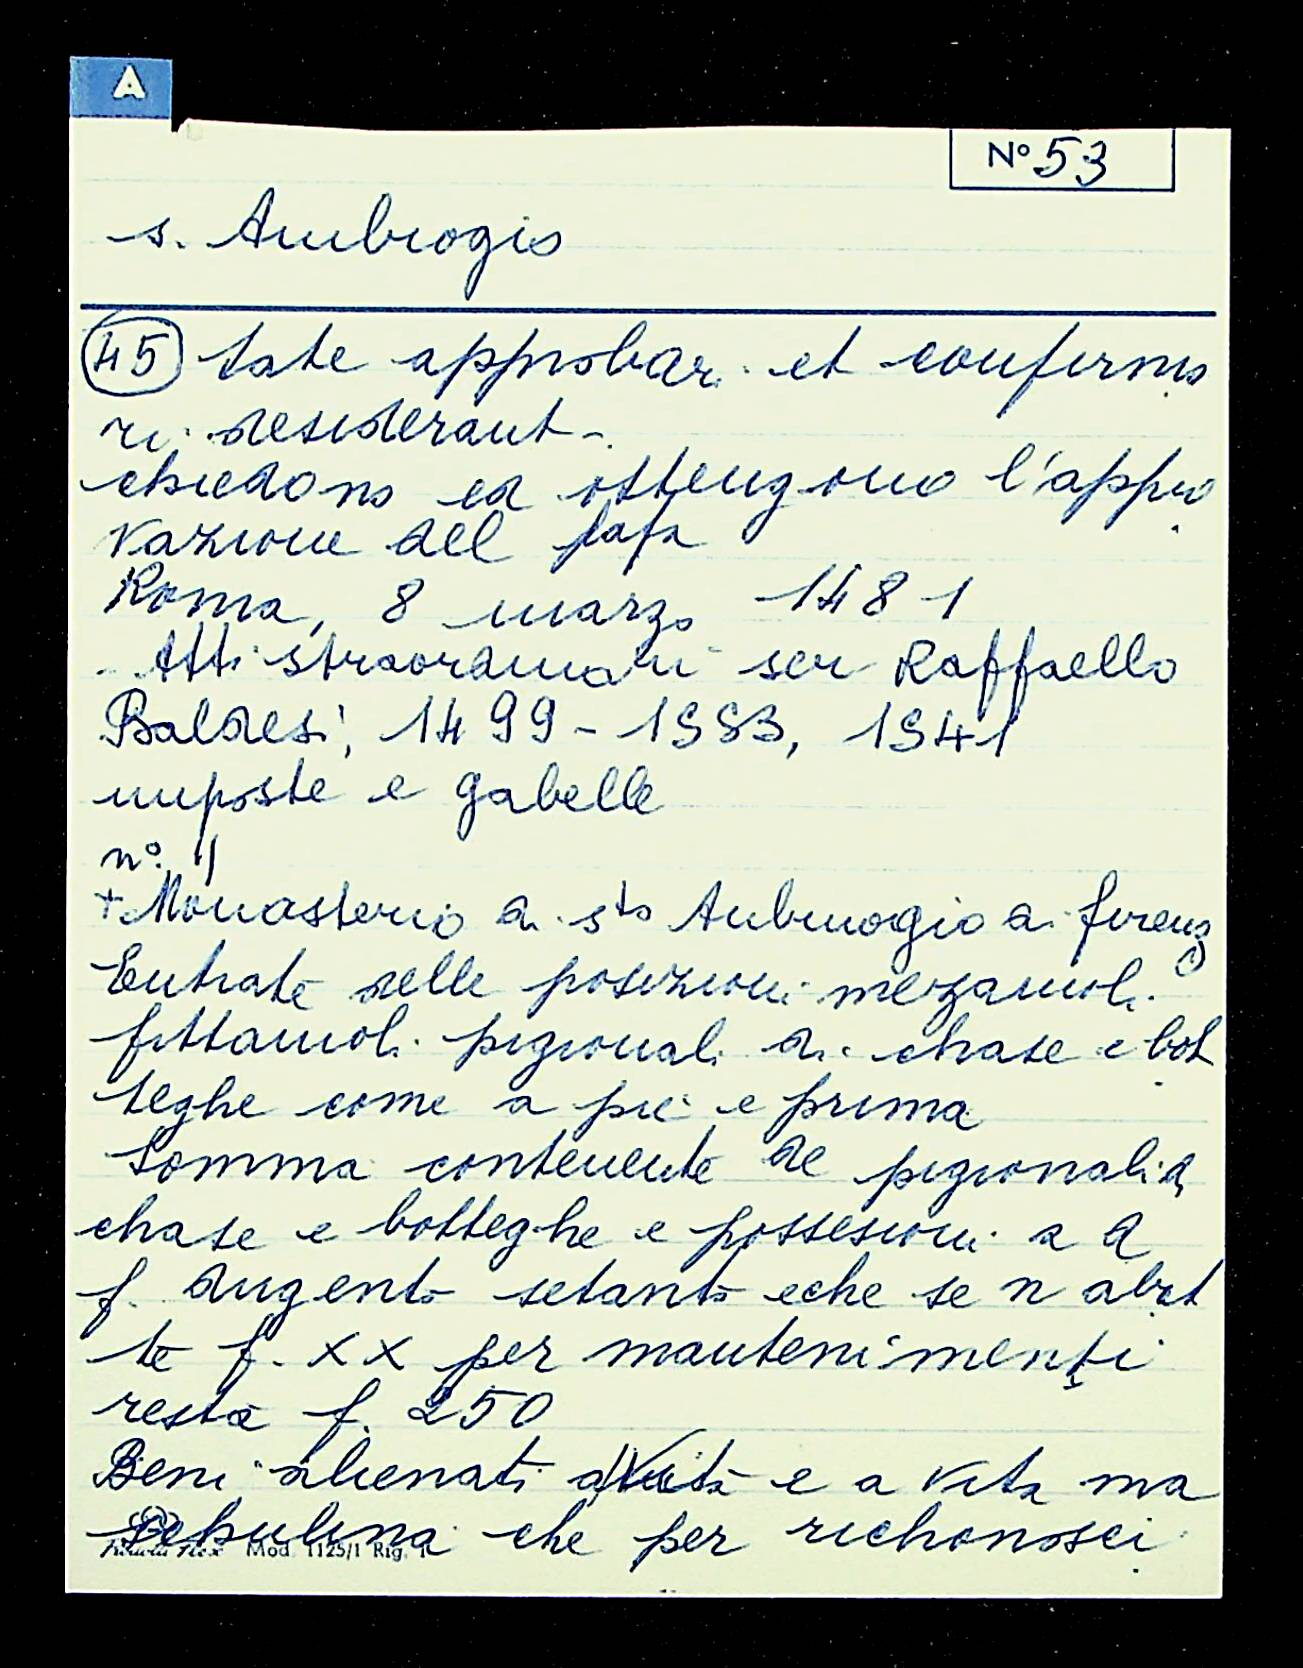 A
N° 53
s. Ambrogio
45 tate approbari et confirma
ri desiderant -
chiedono ed ottengono l'appro
vazione del papa
Roma, 8 marzo 1481
Atti straordinari ser Raffaello
Baldesi, 1499-1553, 1541
imposte e gabelle
n°. 1
+ Monasterio di sto Ambruogio di firenz
e
Entrate delle posizioni mezaiuoli
fittaiuoli pigionali di chase e bot
teghe come a piè e prima
Somma contenente de pigionali d
chase e botteghe e possesioni a d
f. dugento setanta e che se n abat
te f. XX per mantenimenti
resta f. 250
Beni alienati a vita e a vita ma
schulina che per richonosci
Mod. 1125/1 Rig. 1